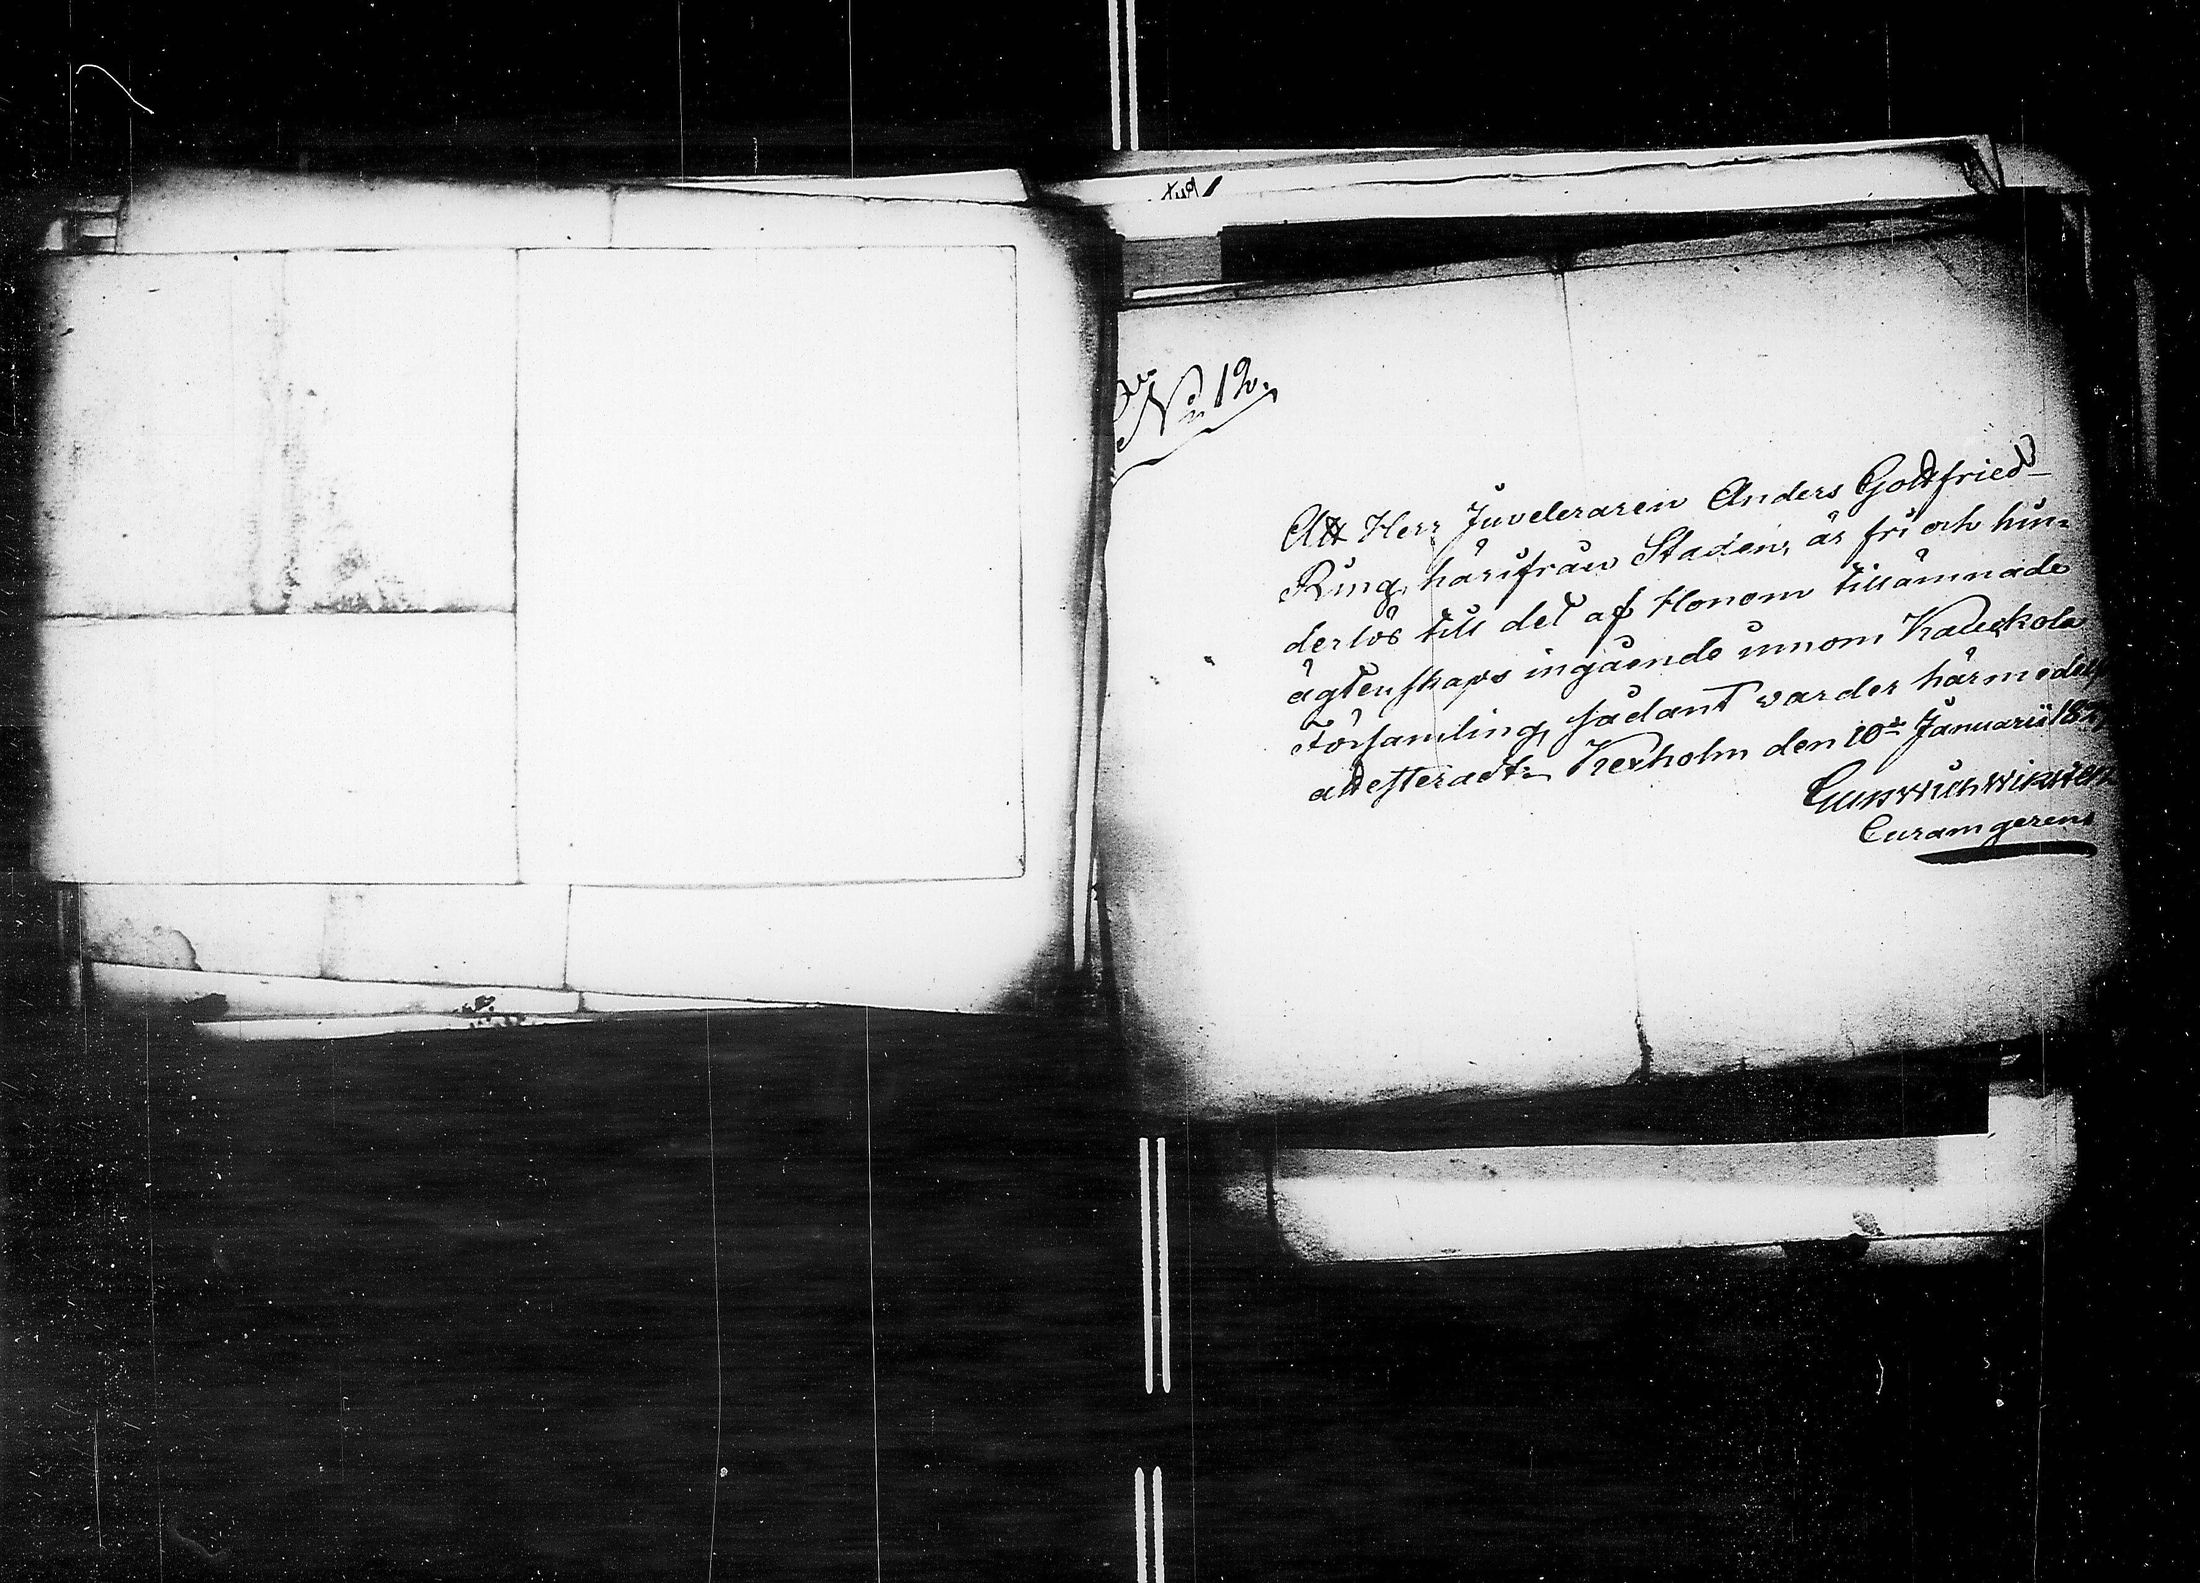 No 12.
Att Herr Juveleraren Anders Gottfried
Ring, härifrån Staden, är fri och hin-
derlös till det af Honom tillämnade
ägtenskaps ingående innom Kaukola
Församling, sådant warder härmedelst
attesteradt. Kexholm den 10de Januarii 18
Wikstén
Curam gerens